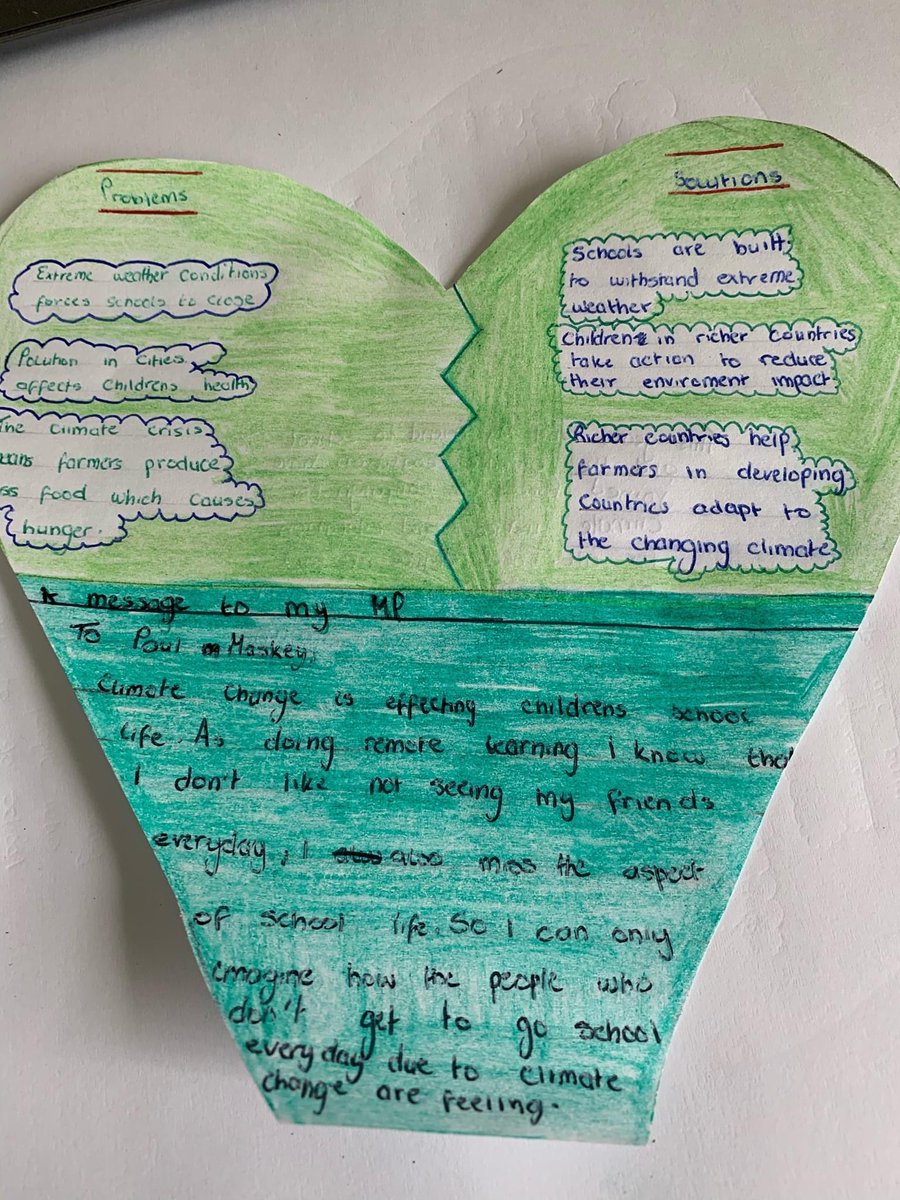 Problems
Extreme weather conditions
forces schools to close
Polution in cities
affects Childrens health
The Climate crisis
farmers produce
food which causes
hunger.
Solutions
Schools are built
to withstand extreme
weather
Children in richer countries
take action to reduce
their enviroment impact.
Richer countries help
farmers in developing
Countries adapt to
the changing climate
message to my MP
To Paul Maskey,
Climate Change is effecting childrens school
life. As doing remote learning i know
I don't like not seeing my friends
everyday, I also miss the aspect
of school life. So I can only
imagine how the people who
don't get to go school
everyday due to climate
change are feeling.